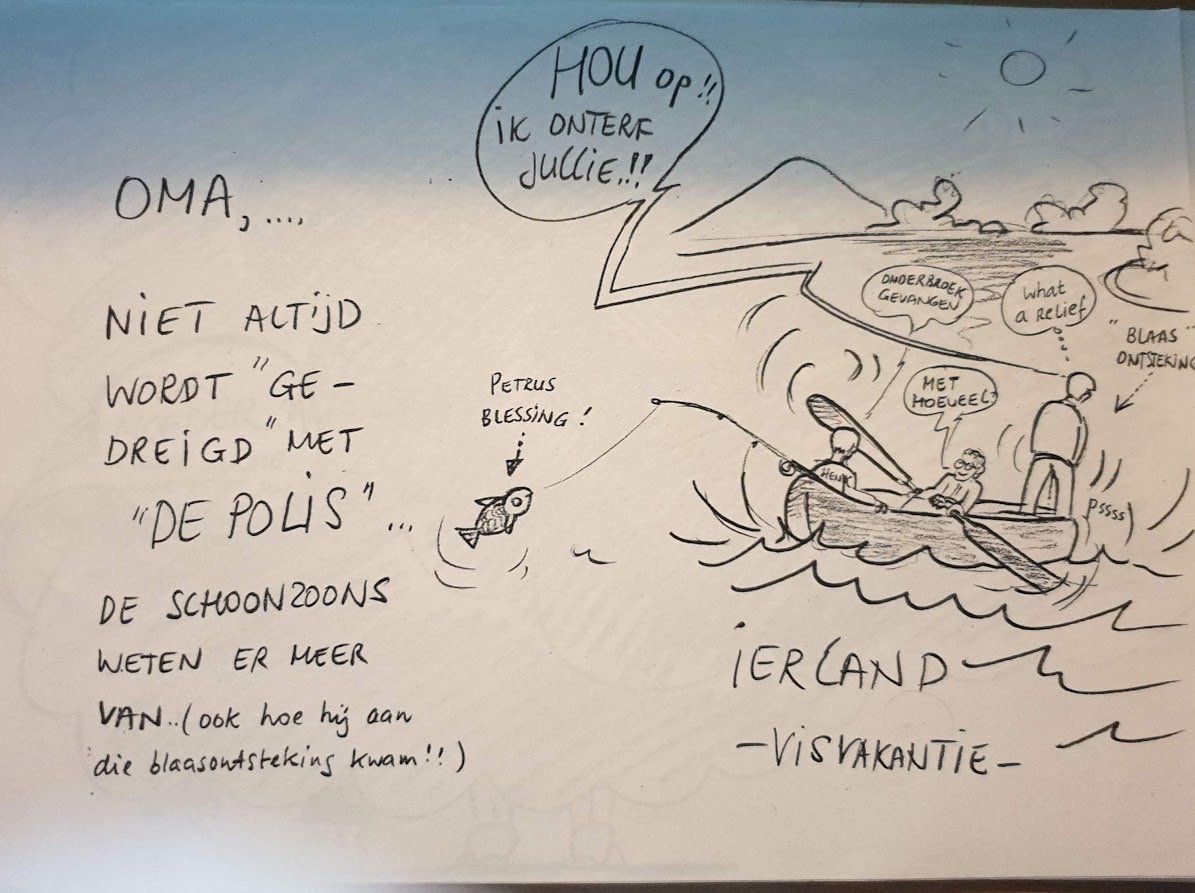 HOU op!!
iK ONTERF
JULLIE.!!
OMA,....
NiET ALTiJD
WORDT "GE-
DREiGD" MET
"DE POLIS"...
DE SCHOONZOONS
WETEN ER MEER
VAN..(ook hoe hij aan
die blaasontsteking kwam!!)
PETRUS
BLESSING!
ONDERBROEK
GEVANGEN
What
a Relief
"BLAAS"
ONTSTEKING
MET
HOEVEEL?
HENK
PSSSS
iERLAND
-VISVAKANTIE-